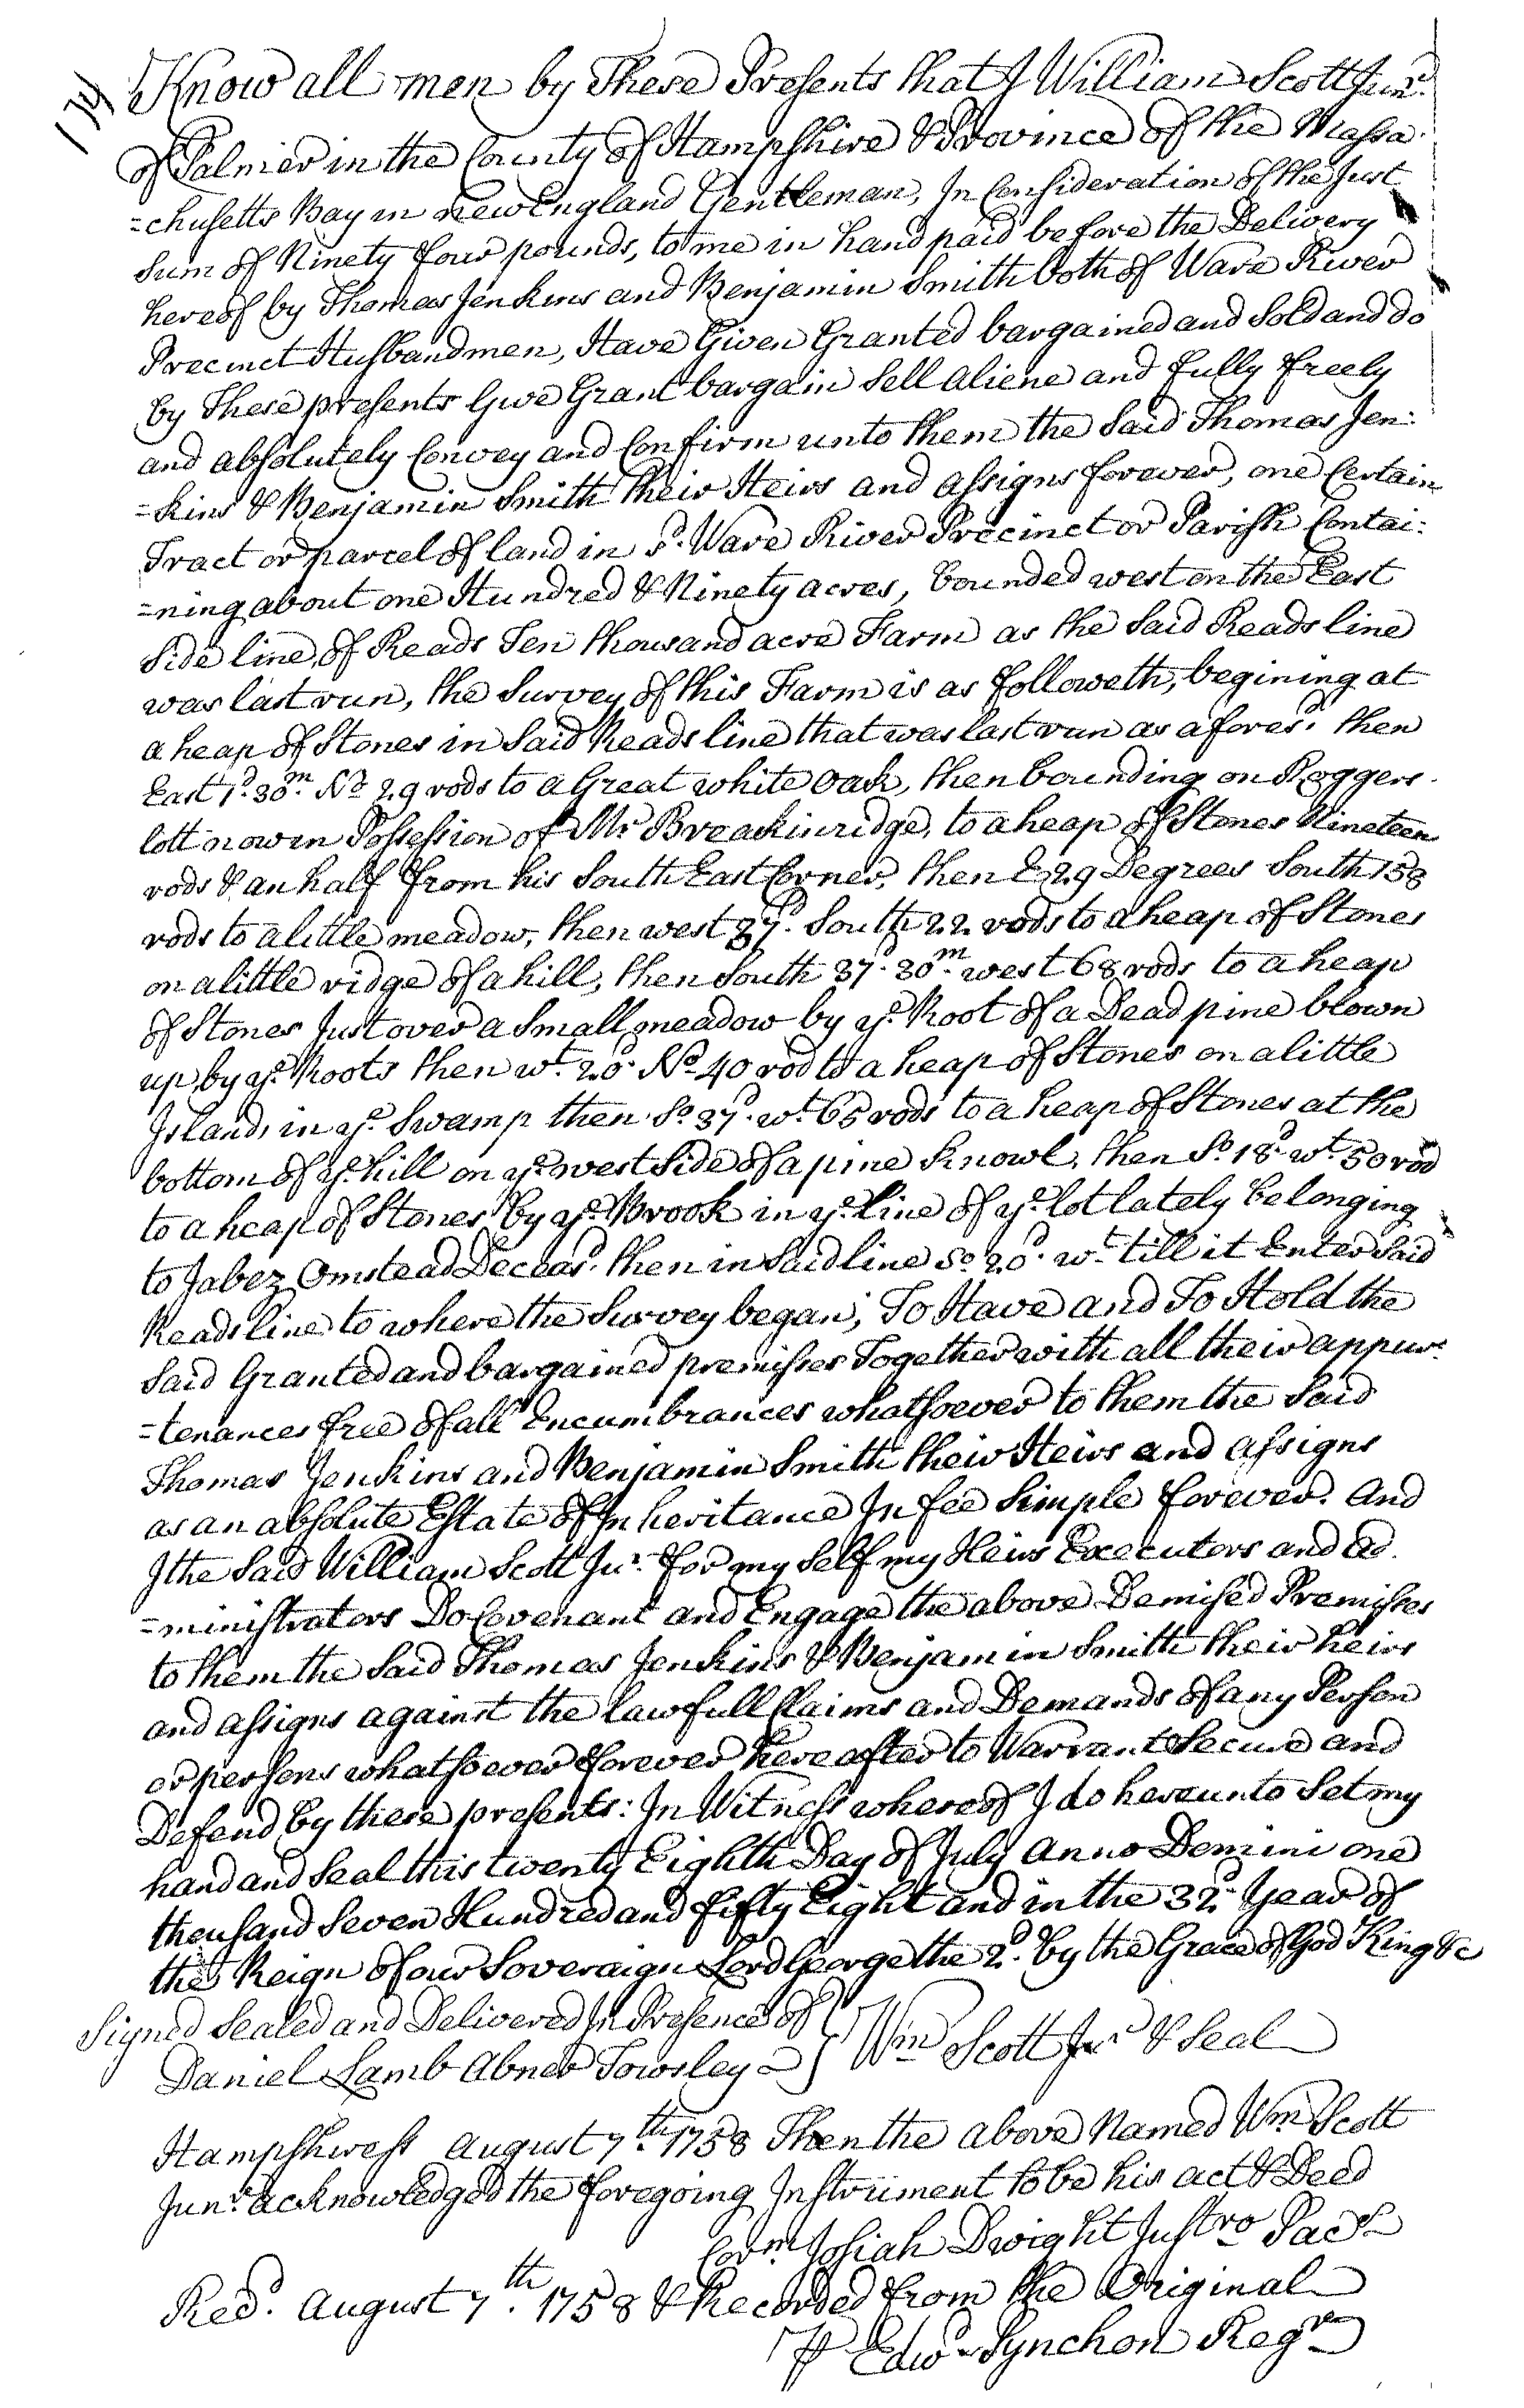 174
Know all men by These Presents that I William Scott Junr.
of Palmer in the County of Hampshire & Province of the Massa-
=chusetts Bay in New England Gentleman, In Consideration of the Just
Sum of Ninety four pounds, to me in hand paid before the Delivery
hereof by Thomas Jenkins and Benjamin Smith both of Ware River
Precinct Husbandmen, Have Given Granted bargained and Sold and do
by These presents Give Grant bargain Sell aliene and fully freely
and absolutely Convey and Confirm unto them the Said Thomas Jen:
=kins & Benjamin Smith their Heirs and assigns forever, one Certain
Tract or parcel of land in sd. Ware River Precinct or Parish Contai:
=ning about one Hundred & Ninety acres, bounded west on the East
Side line of Reads Ten thousand acre Farm as the Said Reads line
was last run, the Survey of this Farm is as followeth, begining at
a heap of Stones in Said Reads line that was last run as aforesd. then
East 1d. 30m. No. 29 rods to a Great white Oak, then bounding on Roggers
lott now in Possession of Mr Breackinridge, to a heap of Stones Nineteen
rods & an half from his South East Corner, then E 29 Degrees South 158
rods to a little meadow, then west 37d. South 22 rods to a heap of Stones
on a little ridge of a hill, then South 37d. 30m. west 68 rods to a heap
of Stones Just over a Small meadow by ye. Root of a Dead pine blown
up by ye. Roots then wt. 20d. No. 40 rod to a heap of Stones on a little
Island, in ye. Swamp then So. 37d. wt. 65 rods to a heap of Stones at the
bottom of ye. hill on ye. west Side of a pine Knowl, then So. 18d. wt. 50 rod
to a heap of Stones by ye. Brook in ye. line of ye. lot lately belonging
to Jabez Omstead Deceasd. then in Said line So. 20d. wt. till it Enter Said
Reads line to where the Survey began, To Have and To Hold the
Said Granted and bargained premisses Together with all their appur-
=tenances free of all Encumbrances whatsoever to them the Said
Thomas Jenkins and Benjamin Smith their Heirs and assigns
as an absolute Estate of Inheritance In fee Simple forever. And
I the Said William Scott Jur. for my Self my Heirs Executors and Ad.
=ministrators Do Covenant and Engage the above Demised Premisses
to them the Said Thomas Jenkins & Benjamin Smith their heirs
and assigns against the lawfull Claims and Demands of any Person
or persons whatsoever forever hereafter to Warrant Secure and
Defend by these presents: In Witness whereof I do hereunto Set my
hand and Seal this twenty Eighth Day of July Anno Domini one
thousand Seven Hundred and fifty Eight and in the 32d. Year of
the Reign of our Soveraign Lord George the 2d. by the Grace of God King &c
Signed Sealed and Delivered In Presence of
Daniel Lamb Abner Towsley } Wm Scott Jur & Seal
Hampshire ss August 7th. 1758 Then the above Named Wm Scott
Junr. acknowledged the foregoing Instrument to be his act & Deed
Corm Josiah Dwight Justro Pacs
Recd. August 7th. 1758 & Recorded from the Original
P Edwd Pynchon Regr